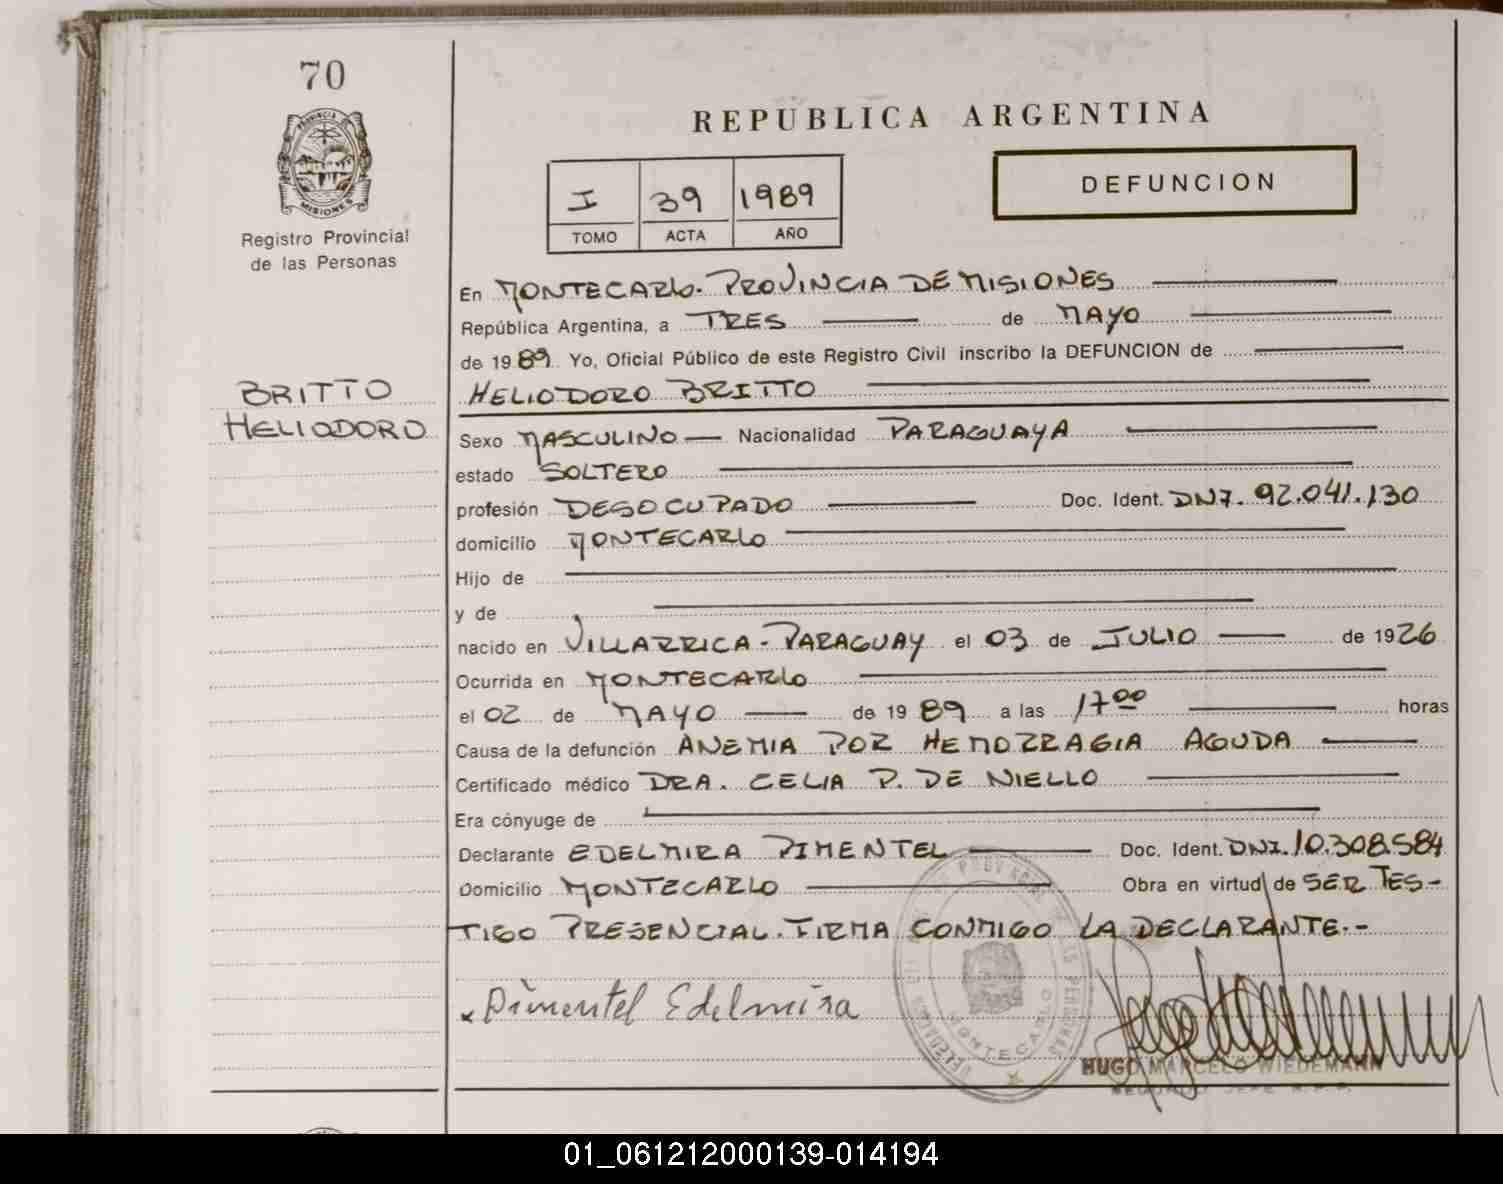 70
PROVINCIA DE
MISIONES
Registro Provincial
de las Personas
BRITTO
HELIODORO
REPUBLICA ARGENTINA
I 39 1989
TOMO ACTA AÑO
DEFUNCION
En MONTECARLO. PROVINCIA DE MISIONES
República Argentina, a TRES de MAYO
de 1989. Yo, Oficial Público de este Registro Civil inscribo la DEFUNCION de
HELIODORO BRITTO
Sexo MASCULINO Nacionalidad PARAGUAYA
estado SOLTERO
profesión DESOCUPADO Doc. Ident. DNI. 92.041.130
domicilio MONTECARLO
Hijo de
y de
nacido en VILLARRICA - PARAGUAY el 03 de JULIO de 1926
Ocurrida en MONTECARLO
el 02 de MAYO de 1989 a las 17 00 horas
Causa de la defunción ANEMIA POR HEMORRAGIA AGUDA
Certificado médico DRA. CELIA P. DE NIELLO
Era cónyuge de
Declarante EDELMIRA PIMENTEL Doc. Ident. DNI. 10.308.584
Domicilio MONTECARLO Obra en virtud de SER TES-
TIGO PRESENCIAL. FIRMA CONMIGO LA DECLARANTE.-
x Pimentel Edelmira
MONTECARLO
HUGO MARCELO WIEDEMANN
SEGUNDO JEFE R.P.P.
01_061212000139-014194